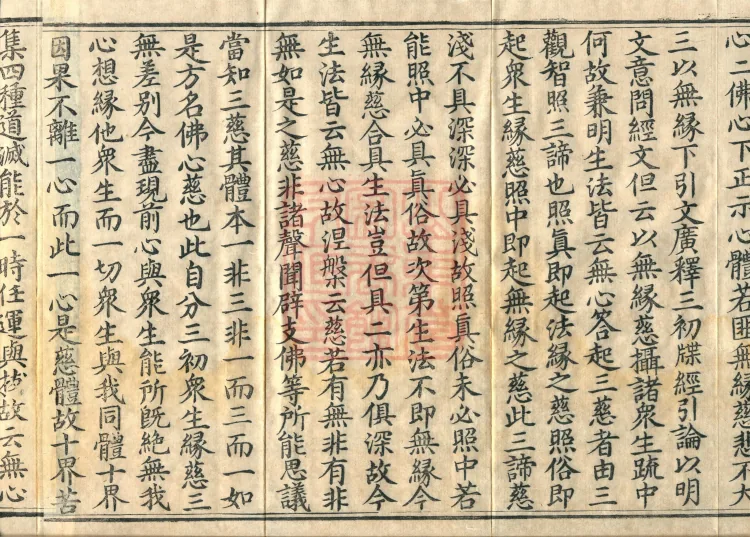 心二佛心下正示心體若匪無緣慈悲不大
三以無緣下引文廣釋三初牒經引論以明
文意問經文但云以無緣慈攝諸衆生疏中
何故兼明生法皆云無心答起三慈者由三
觀智照三諦也照眞即起法緣之慈照俗即
起衆生緣慈照中即起無緣之慈此三諦慈
淺不具深深必具淺故照眞俗未必照中若
能照中必具眞俗故次第生法不即無緣今
無緣慈合具生法豈但具二亦乃俱深故今
生法皆云無心故涅槃云慈若有無非有非
無如是之慈非諸聲聞辟支佛等所能思議
當知三慈其體本一非三非一而三而一如
是方名佛心慈也此自分三初衆生緣慈三
無差別今盡現前心與衆生能所旣絕無我
心想緣他衆生而一切衆生與我同體十界
因果不離一心而此一心是慈體故十界苦
集四種道滅能於一時任運與拔故云無心